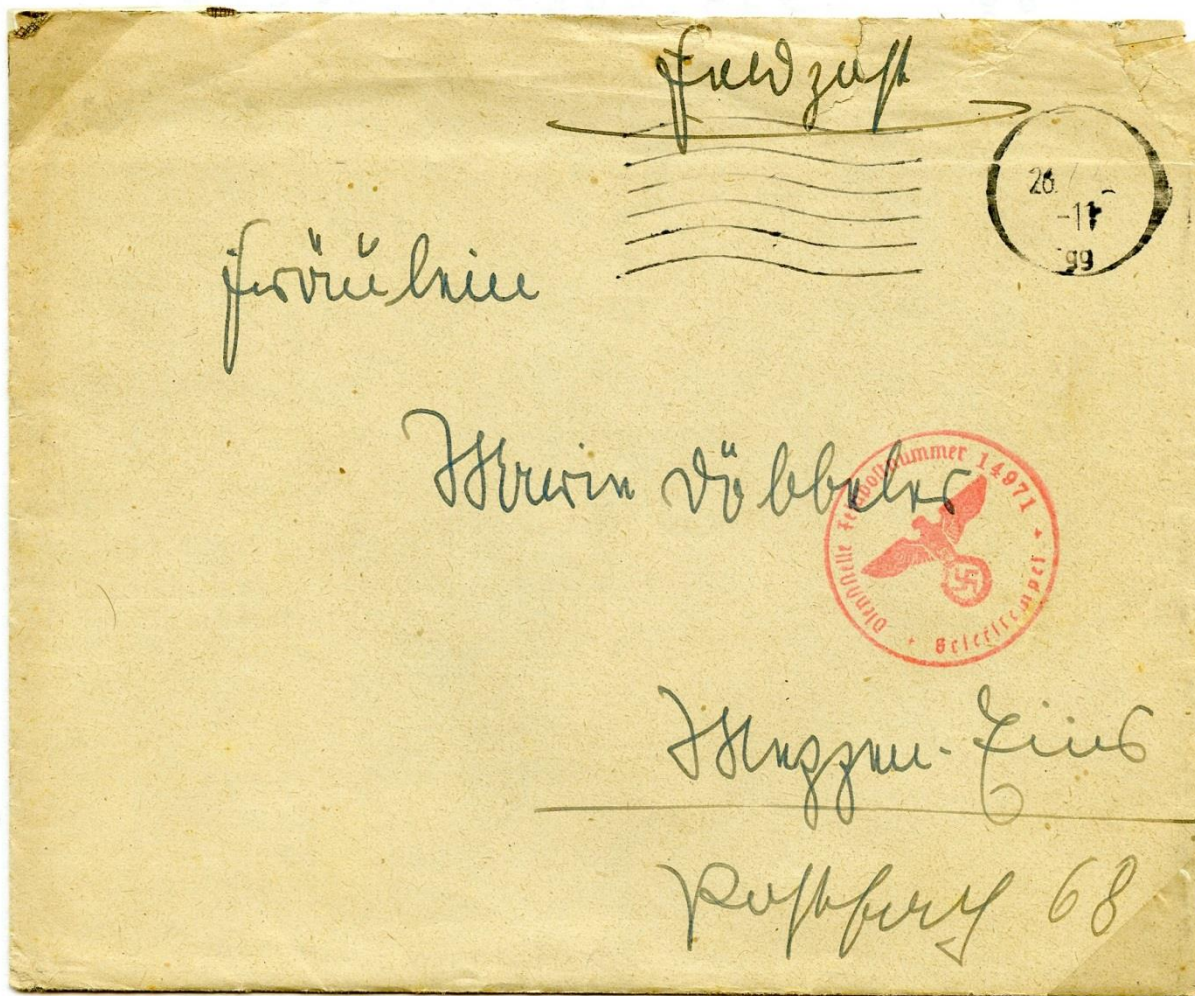 Feldpost
26.
-11
99
Fräulein
Marie Döbbeler
Dienststelle Feldpostnummer 14971 * Briefstempel *
Meppen-Ems
Postfach 68